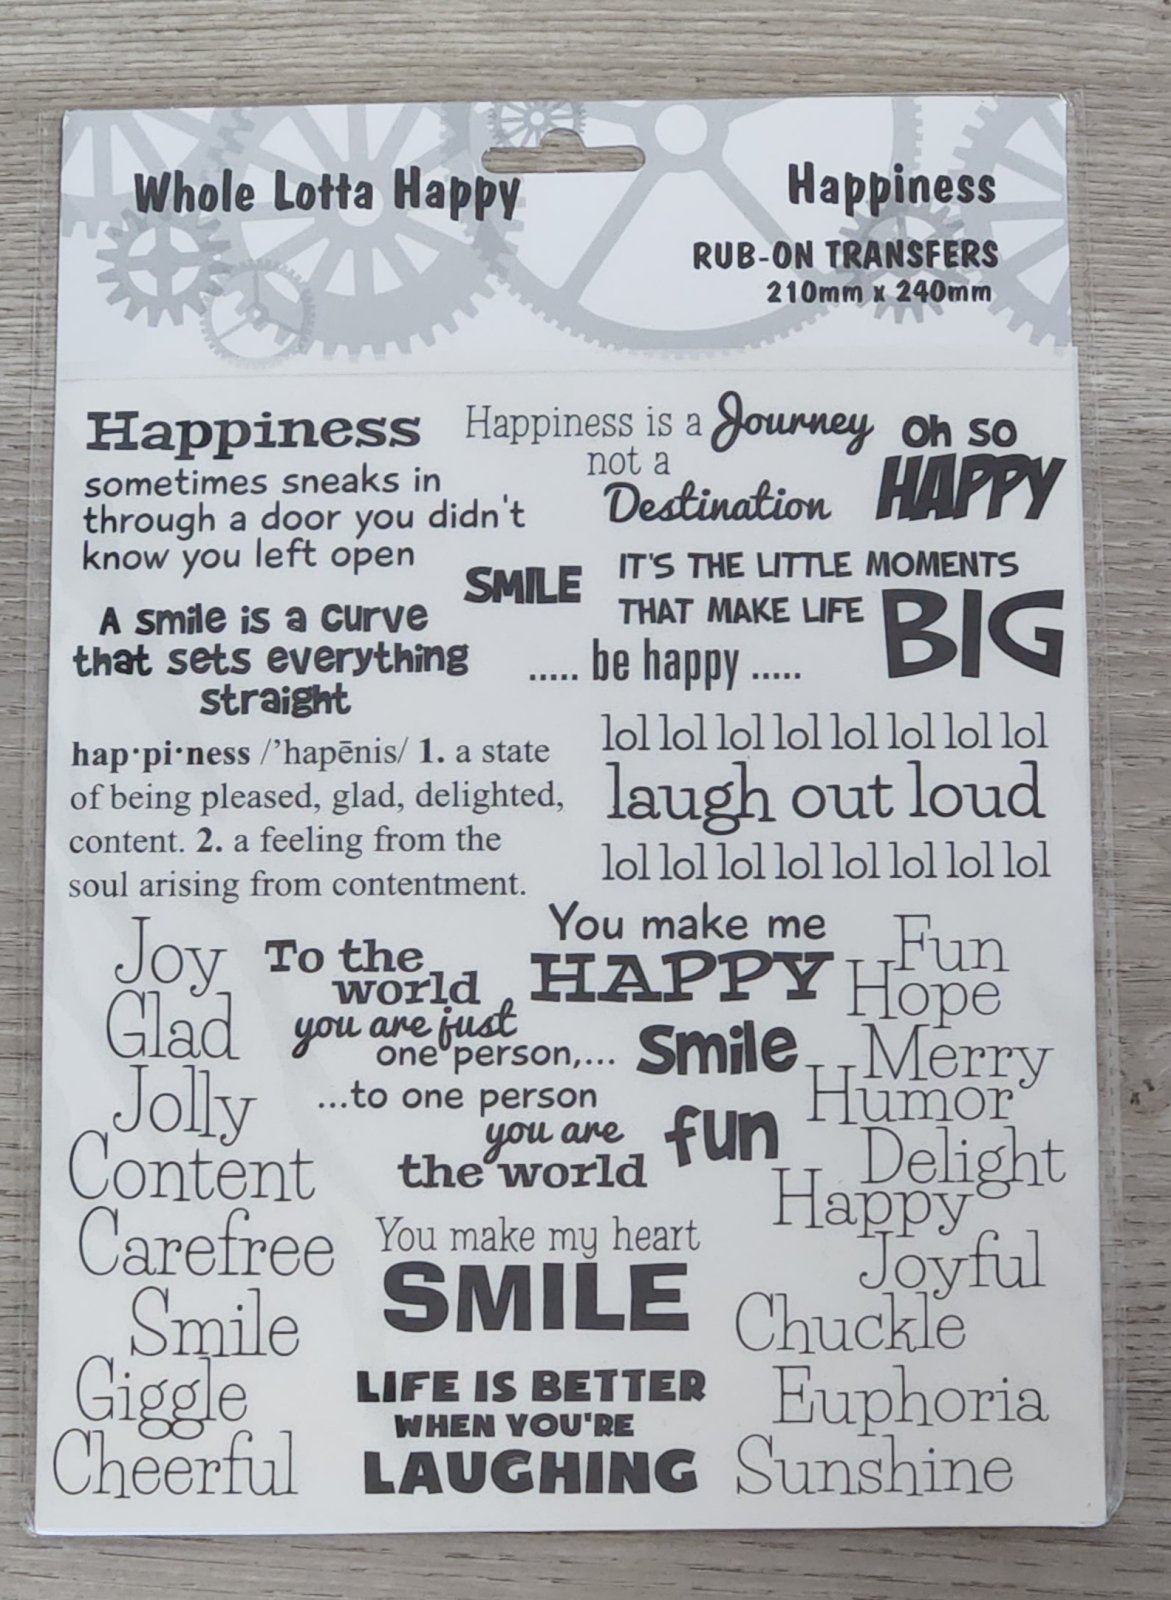 Whole Lotta Happy
Happiness
RUB-ON TRANSFERS
210mm x 240mm
Happiness
sometimes sneaks in
through a door you didn't
know you left open
Happiness is a Journey
not a
Destination
Oh so
HAPPY
SMILE
IT'S THE LITTLE MOMENTS
THAT MAKE LIFE
BIG
A smile is a curve
that sets everything
straight
..... be happy .....
hap·pi·ness /’hapēnis/ 1. a state
of being pleased, glad, delighted,
content. 2. a feeling from the
soul arising from contentment.
lol lol lol lol lol lol lol lol
laugh out loud
lol lol lol lol lol lol lol lol
Joy
Glad
Jolly
Content
Carefree
Smile
Giggle
Cheerful
To the
world
you are just
one person,...
...to one person
you are
the world
You make me
HAPPY
Smile
fun
You make my heart
SMILE
LIFE IS BETTER
WHEN YOU'RE
LAUGHING
Fun
Hope
Merry
Humor
Delight
Happy
Joyful
Chuckle
Euphoria
Sunshine